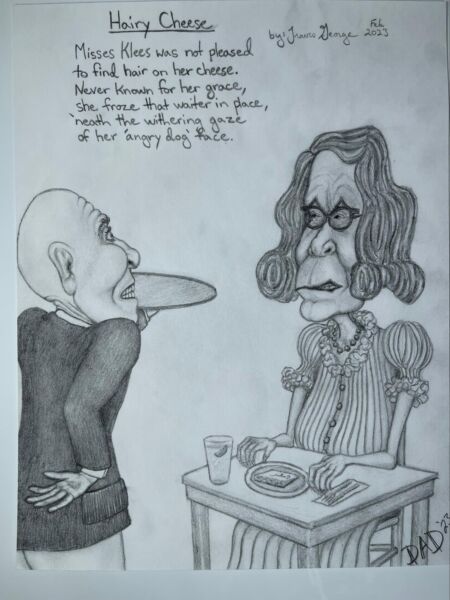 Hairy Cheese
by: Travis George Feb. 2023
Misses Klees was not pleased
to find hair on her cheese.
Never known for her grace,
she froze that waiter in place,
'neath the withering gaze
of her 'angry dog' face.
DAD '23